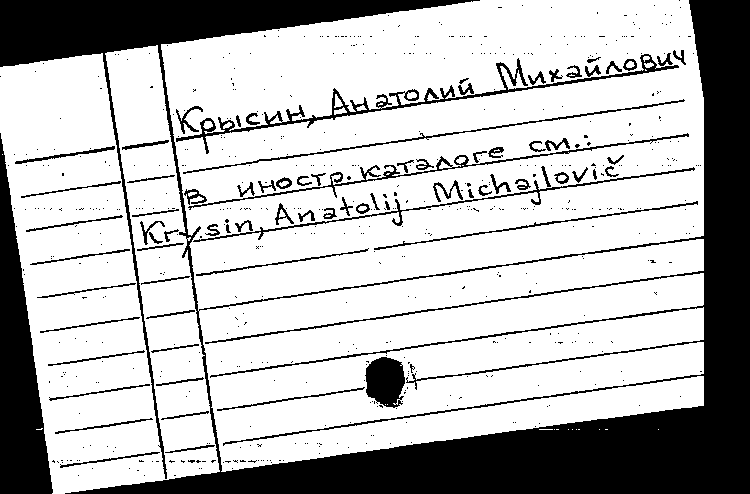 Крысин, Анатолий Михайлович
в иностр. каталоге см.:
Krysin, Anatolij Michajlovič